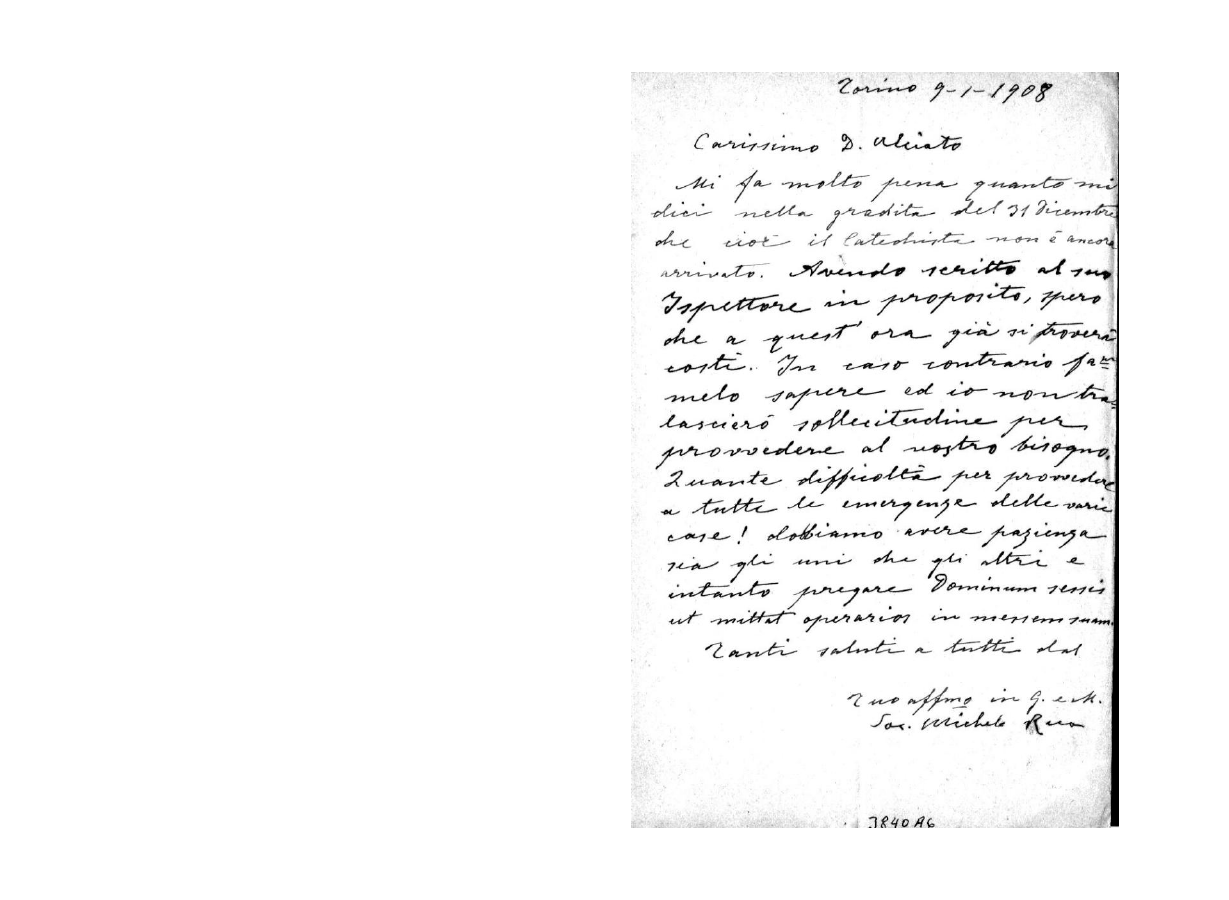 Torino 9-1-1908
Carissimo D. Alciato
Mi fa molto pena quanto mi
dici nella gradita del 31 Dicembre
che cioè il Catechista non è ancora
arrivato. Avendo scritto al suo
Ispettore in proposito, spero
che a quest'ora già si troverà
costì. In caso contrario fam=
melo sapere ed io non tra=
lascierò sollecitudine per
provvedere al vostro bisogno.
Quante difficoltà per provvedere
a tutte le emergenze delle varie
case! dobbiamo avere pazienza
sia gli uni che gli altri e
intanto pregare Dominum messis
ut mittat operarios in messem suam.
Tanti saluti a tutti dal
Tuo affmo in G. e M.
Sac. Michele Rua
3840 A6